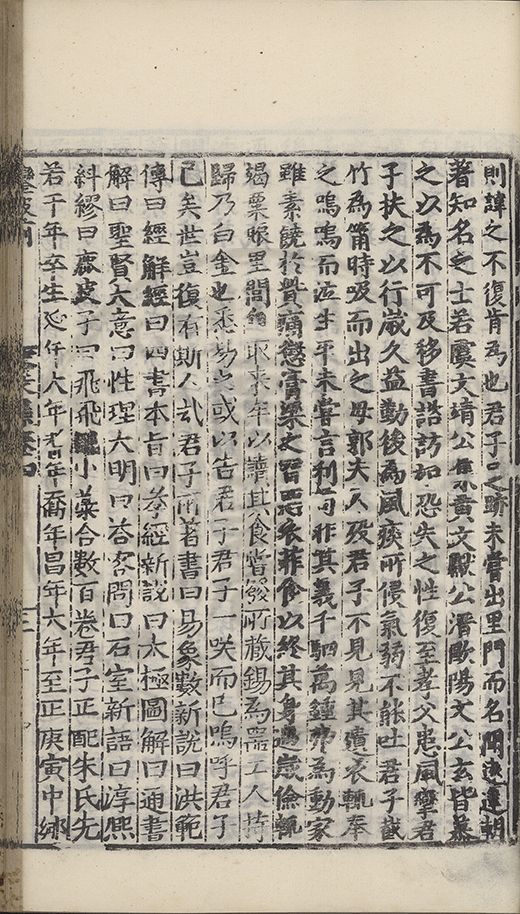 則諱之不復肯為也君子口之跡未嘗出里門而名聞遠邇朝
著知名之士若虞文靖公集黃文獻公溍歐陽文公玄皆慕
之以為不可及移書諮訪如恐失之性復至孝父患風孿君
子扶之以行歲久益勤後為風痰所侵氣弱不能吐君子截
竹為筩時吸而出之母郭夫人歿君子不見見其遺衣輒奉
之嗚嗚而泣生平未嘗言利苟非其義千駟萬鍾弗為動家
雖素饒於貲痛懲膏粱之習惡衣菲食以終其身遇歲儉輒
竭粟賑里閭 取來牟以讀其食嘗發所藏錫為器工人持
歸乃白金也悉易之或以告君子君子一咲而已嗚呼君子
已矣世豈復有斯人哉君子所著書曰易象數新說曰洪範
傳曰經解經曰四書本旨曰孝經新說曰太極圖解曰通書
解曰聖賢大意曰性理大明曰荅客問曰石室新語曰淳熙
糾繆曰鹿皮子曰飛飛 小藁合數百卷君子正配朱氏先
若干年卒生延 年六年 年裔年昌年六年至正庚寅中鄉
文集卷四